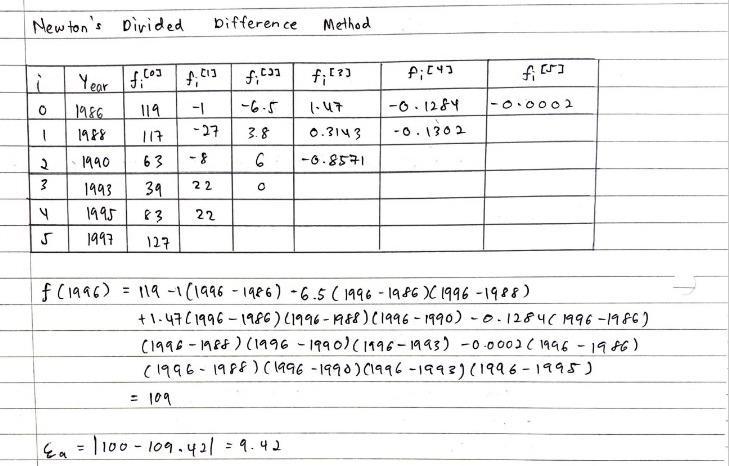 Newton's Divided Difference Method
i Year fᵢ[0] fᵢ[1] fᵢ[2] fᵢ[3] fᵢ[4] fᵢ[5]
0 1986 119 -1 -6.5 1.47 -0.1284 -0.0002
1 1988 117 -27 3.8 0.3143 -0.1302
2 1990 63 -8 6 -0.8571
3 1993 39 22 0
4 1995 83 22
5 1997 127
f(1996) = 119 -1(1996 - 1986) -6.5(1996 - 1986)(1996 - 1988)
+1.47(1996 - 1986)(1996 - 1988)(1996 - 1990) - 0.1284(1996 - 1986)
(1996 - 1988)(1996 - 1990)(1996 - 1993) -0.0002(1996 - 1986)
(1996 - 1988)(1996 - 1990)(1996 - 1993)(1996 - 1995)
= 109
εa = |100 - 109.42| = 9.42